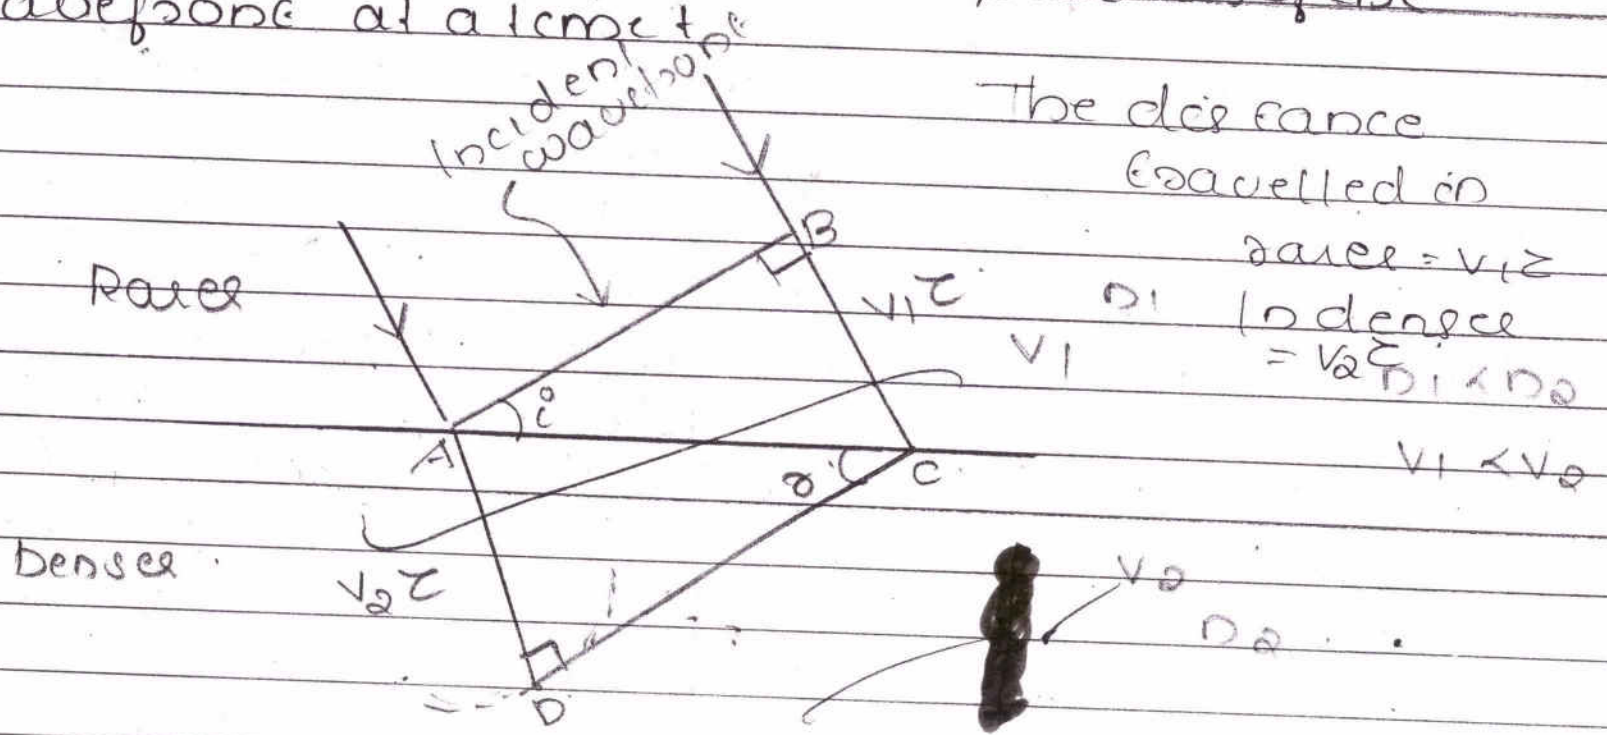 wavefront at a time t
Incident
wavefront
The distance
travelled in
rarer = v₁τ
In denser
= v₂τ
n₁ < n₂
v₁ < v₂
Rarer
B
v₁τ
n₁
v₁
i
A
r
C
Denser
v₂τ
v₂
n₂
D